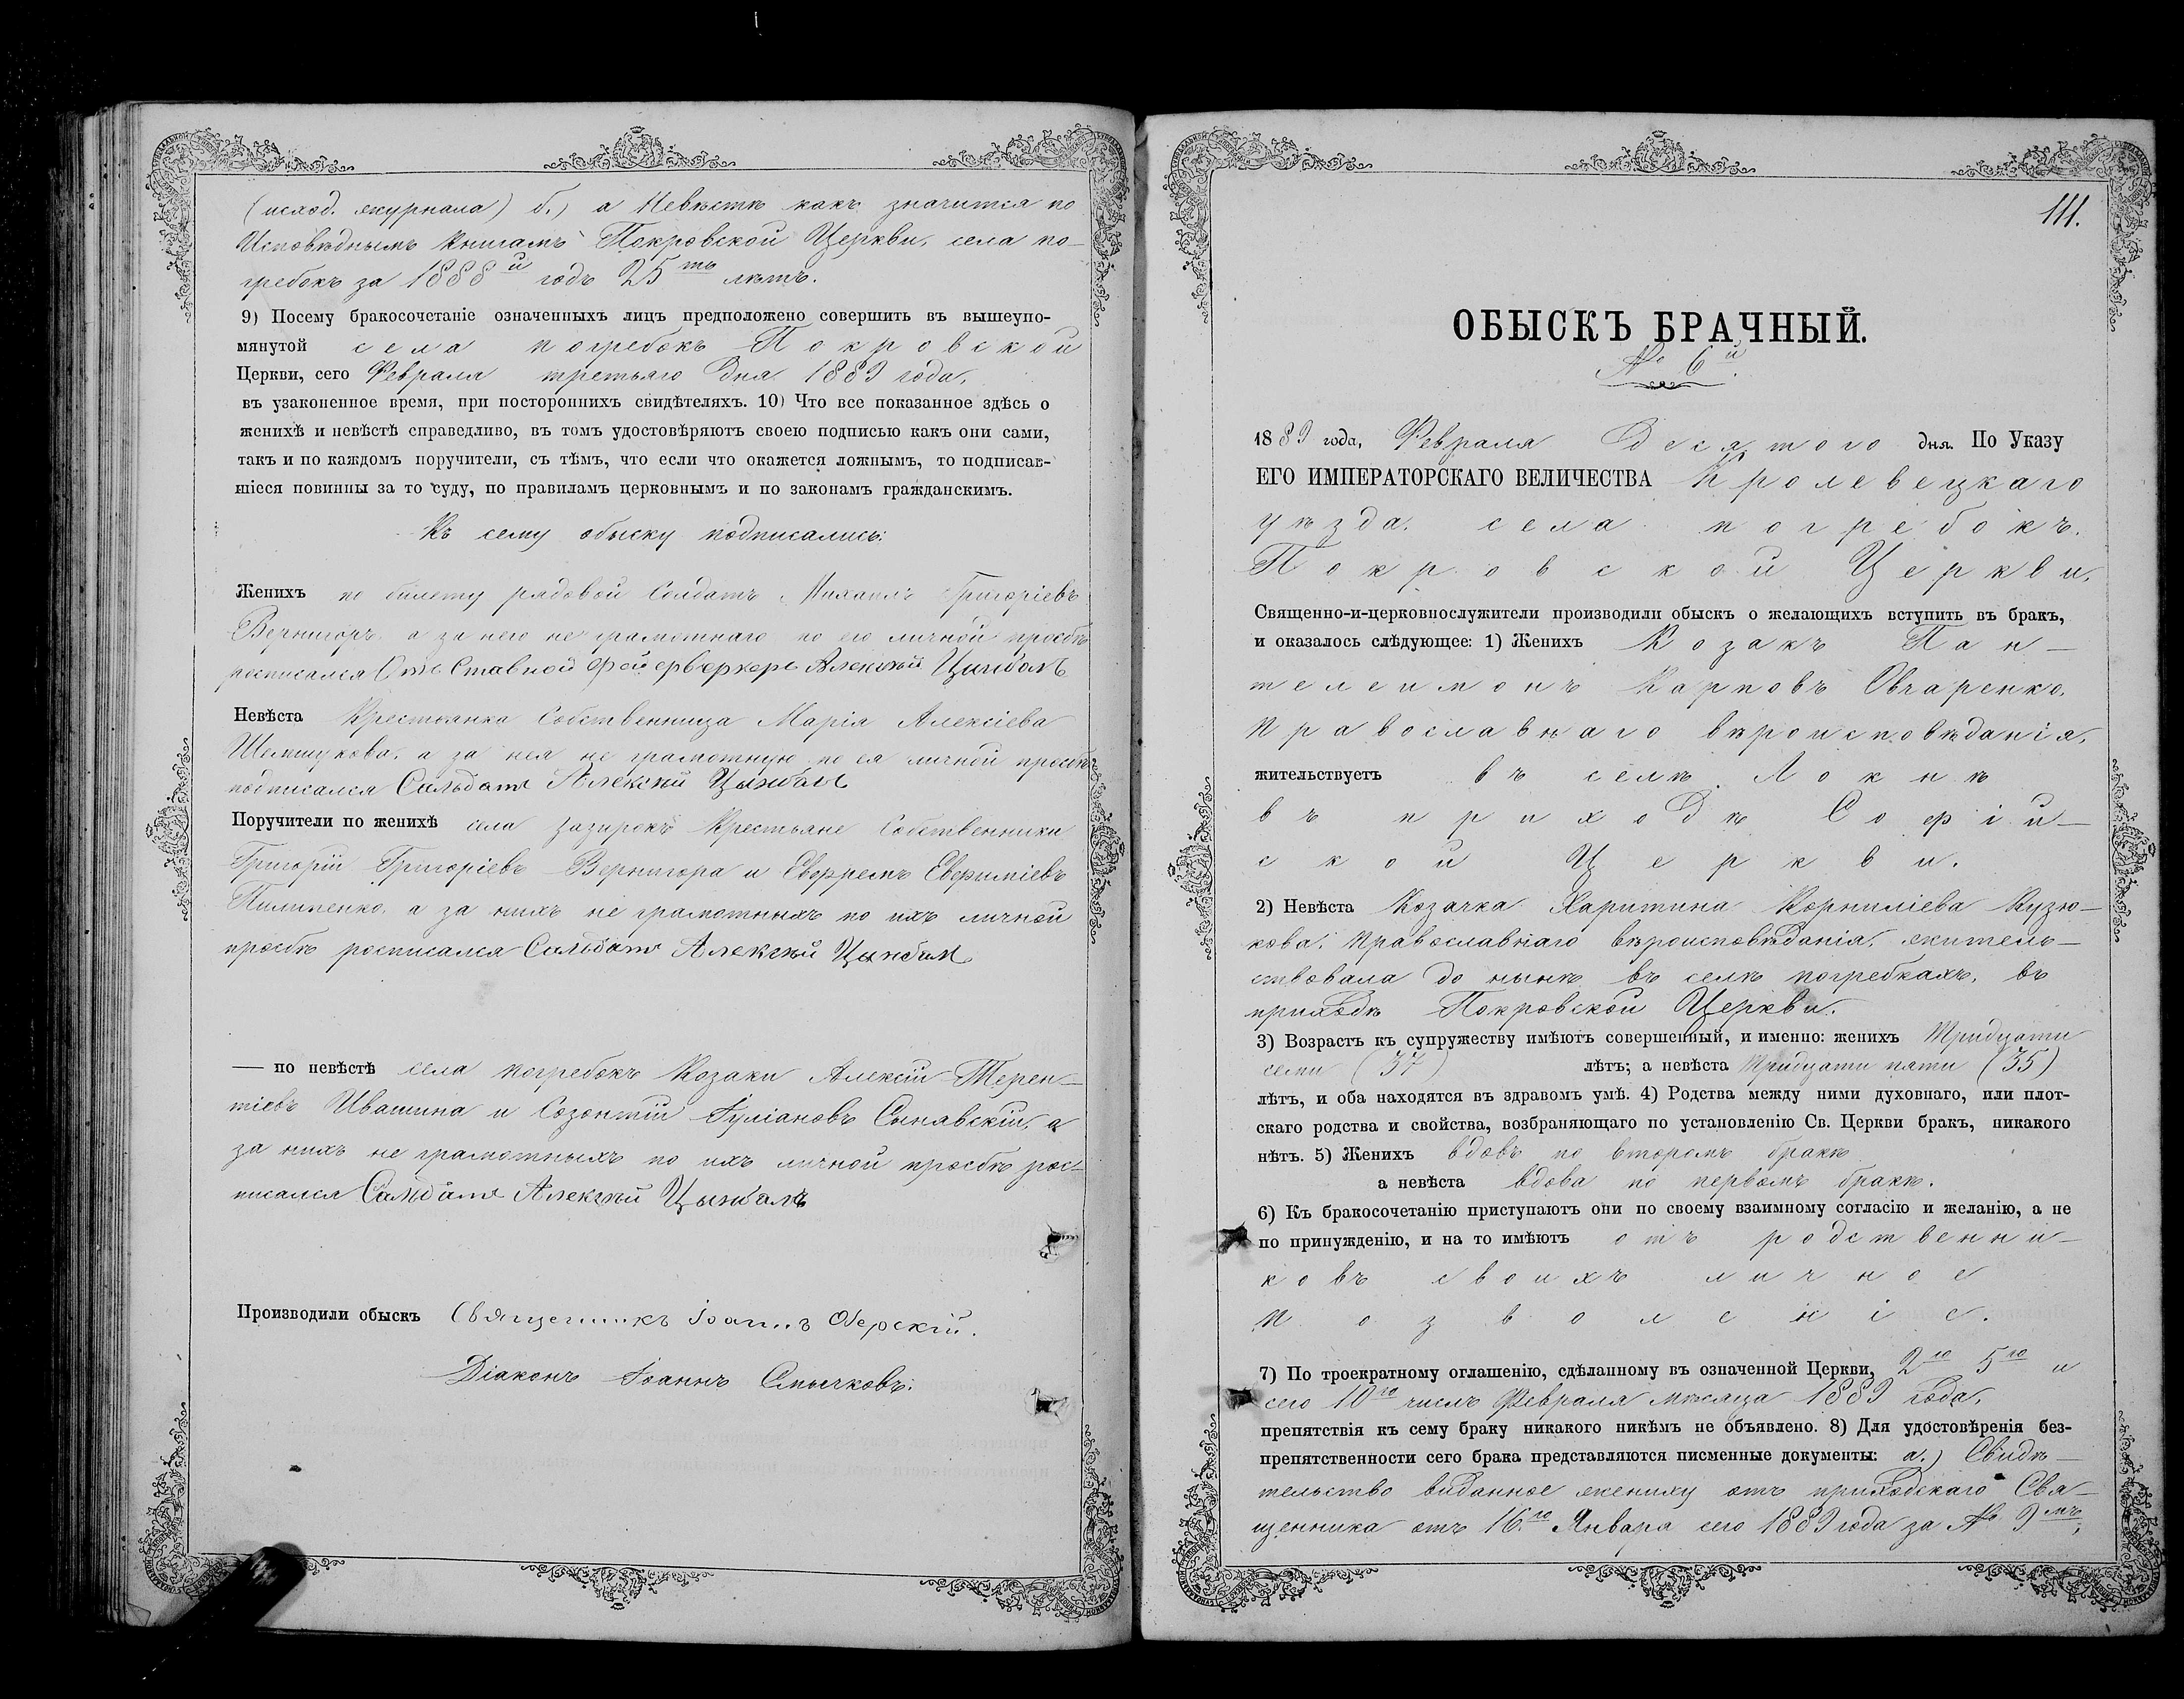 (исход. журнала) б.) а Невѣстѣ какъ значится по
Исповѣднымъ Книгамъ Покровской Церкви, села по-
гребокъ за 1888й годъ 25ть лѣтъ.
9) Посему бракосочетаніе означенныхъ лицъ предположено совершить въ вышеупо-
мянутой села погребокъ Покровской
Церкви, сего Февраля третьяго дня 1889 года,
въ узаконенное время, при постороннихъ свидѣтеляхъ. 10) Что все показанное здѣсь о
женихѣ и невѣстѣ справедливо, въ томъ удостовѣряютъ своею подписью какъ они сами,
такъ и по каждомъ поручители, съ тѣмъ, что если что окажется ложнымъ, то подписав-
шіеся повинны за то суду, по правиламъ церковнымъ и по законамъ гражданскимъ.
Къ сему обыску подписались:
Женихъ по билету рядовой Солдатъ Михаилъ Григоріевъ
Вернигоръ а за него не грамотнаго по его личной просьбѣ
росписался Отъ Ставной фейерверкеръ Алексѣй Цынбалъ
Невѣста Крестьянка Собственница Марія Алексіева
Шемшукова, а за нея не грамотную по ея личной просьбѣ
подписался Сальдатъ Алексѣй Цынбалъ
Поручители по женихѣ села Зазирокъ Крестьяне Собственники
Григорій Григоріевъ Вернигора и Евфремъ Евфиміевъ
Пилипенко, а за нихъ не грамотныхъ по ихъ личной
просьбѣ росписался Сальдатъ Алексѣй Цынбал
— по невѣстѣ села погребокъ Козаки Алексій Терен-
тіевъ Ивашина и Созонтій Іуліановъ Сынявскій, а
за нихъ не грамотныхъ по ихъ личной просьбѣ рос-
писался Сальдатъ Алексѣй Цынбалъ
Производили обыскъ Священникъ Іоаннъ Озерскій.
Діаконъ Іоаннъ Смычковъ.
111.
ОБЫСКЪ БРАЧНЫЙ.
№ 6й
1889 года, Февраля Десятого дня. По Указу
ЕГО ИМПЕРАТОРСКАГО ВЕЛИЧЕСТВА Кролевецкаго
уѣзда. села погребокъ.
Покровской Церкви,
Священно-и-церковнослужители производили обыскъ о желающихъ вступить въ бракъ,
и оказалось слѣдующее: 1) Женихъ Козакъ Пан-
телеимонъ Карповъ Овчаренко,
православнаго вѣроисповѣданія,
жительствуетъ въ селѣ Локнѣ
въ приходѣ Софіи-
ской Церкви.
2) Невѣста Козачка Харитина Корниліева Кузю-
кова, православнаго вѣроисповѣданія, житель-
ствовала до нынѣ въ селѣ погребкахъ, въ
приходѣ Покровской Церкви.
3) Возрастъ къ супружеству имѣютъ совершенный, и именно: женихъ Тридцати
семи (37) лѣтъ; а невѣста Тридцати пяти (35)
лѣтъ, и оба находятся въ здравомъ умѣ. 4) Родства между ними духовнаго, или плот-
скаго родства и свойства, возбраняющаго по установленію Св. Церкви бракъ, никакого
нѣтъ. 5) Женихъ вдовъ по второмъ бракѣ
а невѣста вдова по первомъ бракѣ.
6) Къ бракосочетанію приступаютъ они по своему взаимному согласію и желанію, а не
по принужденію, и на то имѣютъ отъ родственни-
ковъ своихъ личное
позволеніе.
7) По троекратному оглашенію, сдѣланному въ означенной Церкви, 2го 5го и
сего 10го числъ Февраля мѣсяца 1889 года,
препятствія къ сему браку никакого никѣмъ не объявлено. 8) Для удостовѣренія без-
препятственности сего брака представляются писменные документы: а.) Свидѣ-
тельство виданное жениху отъ приходскаго Свя-
щенника отъ 16го Января сего 1889 года за № 9мъ,